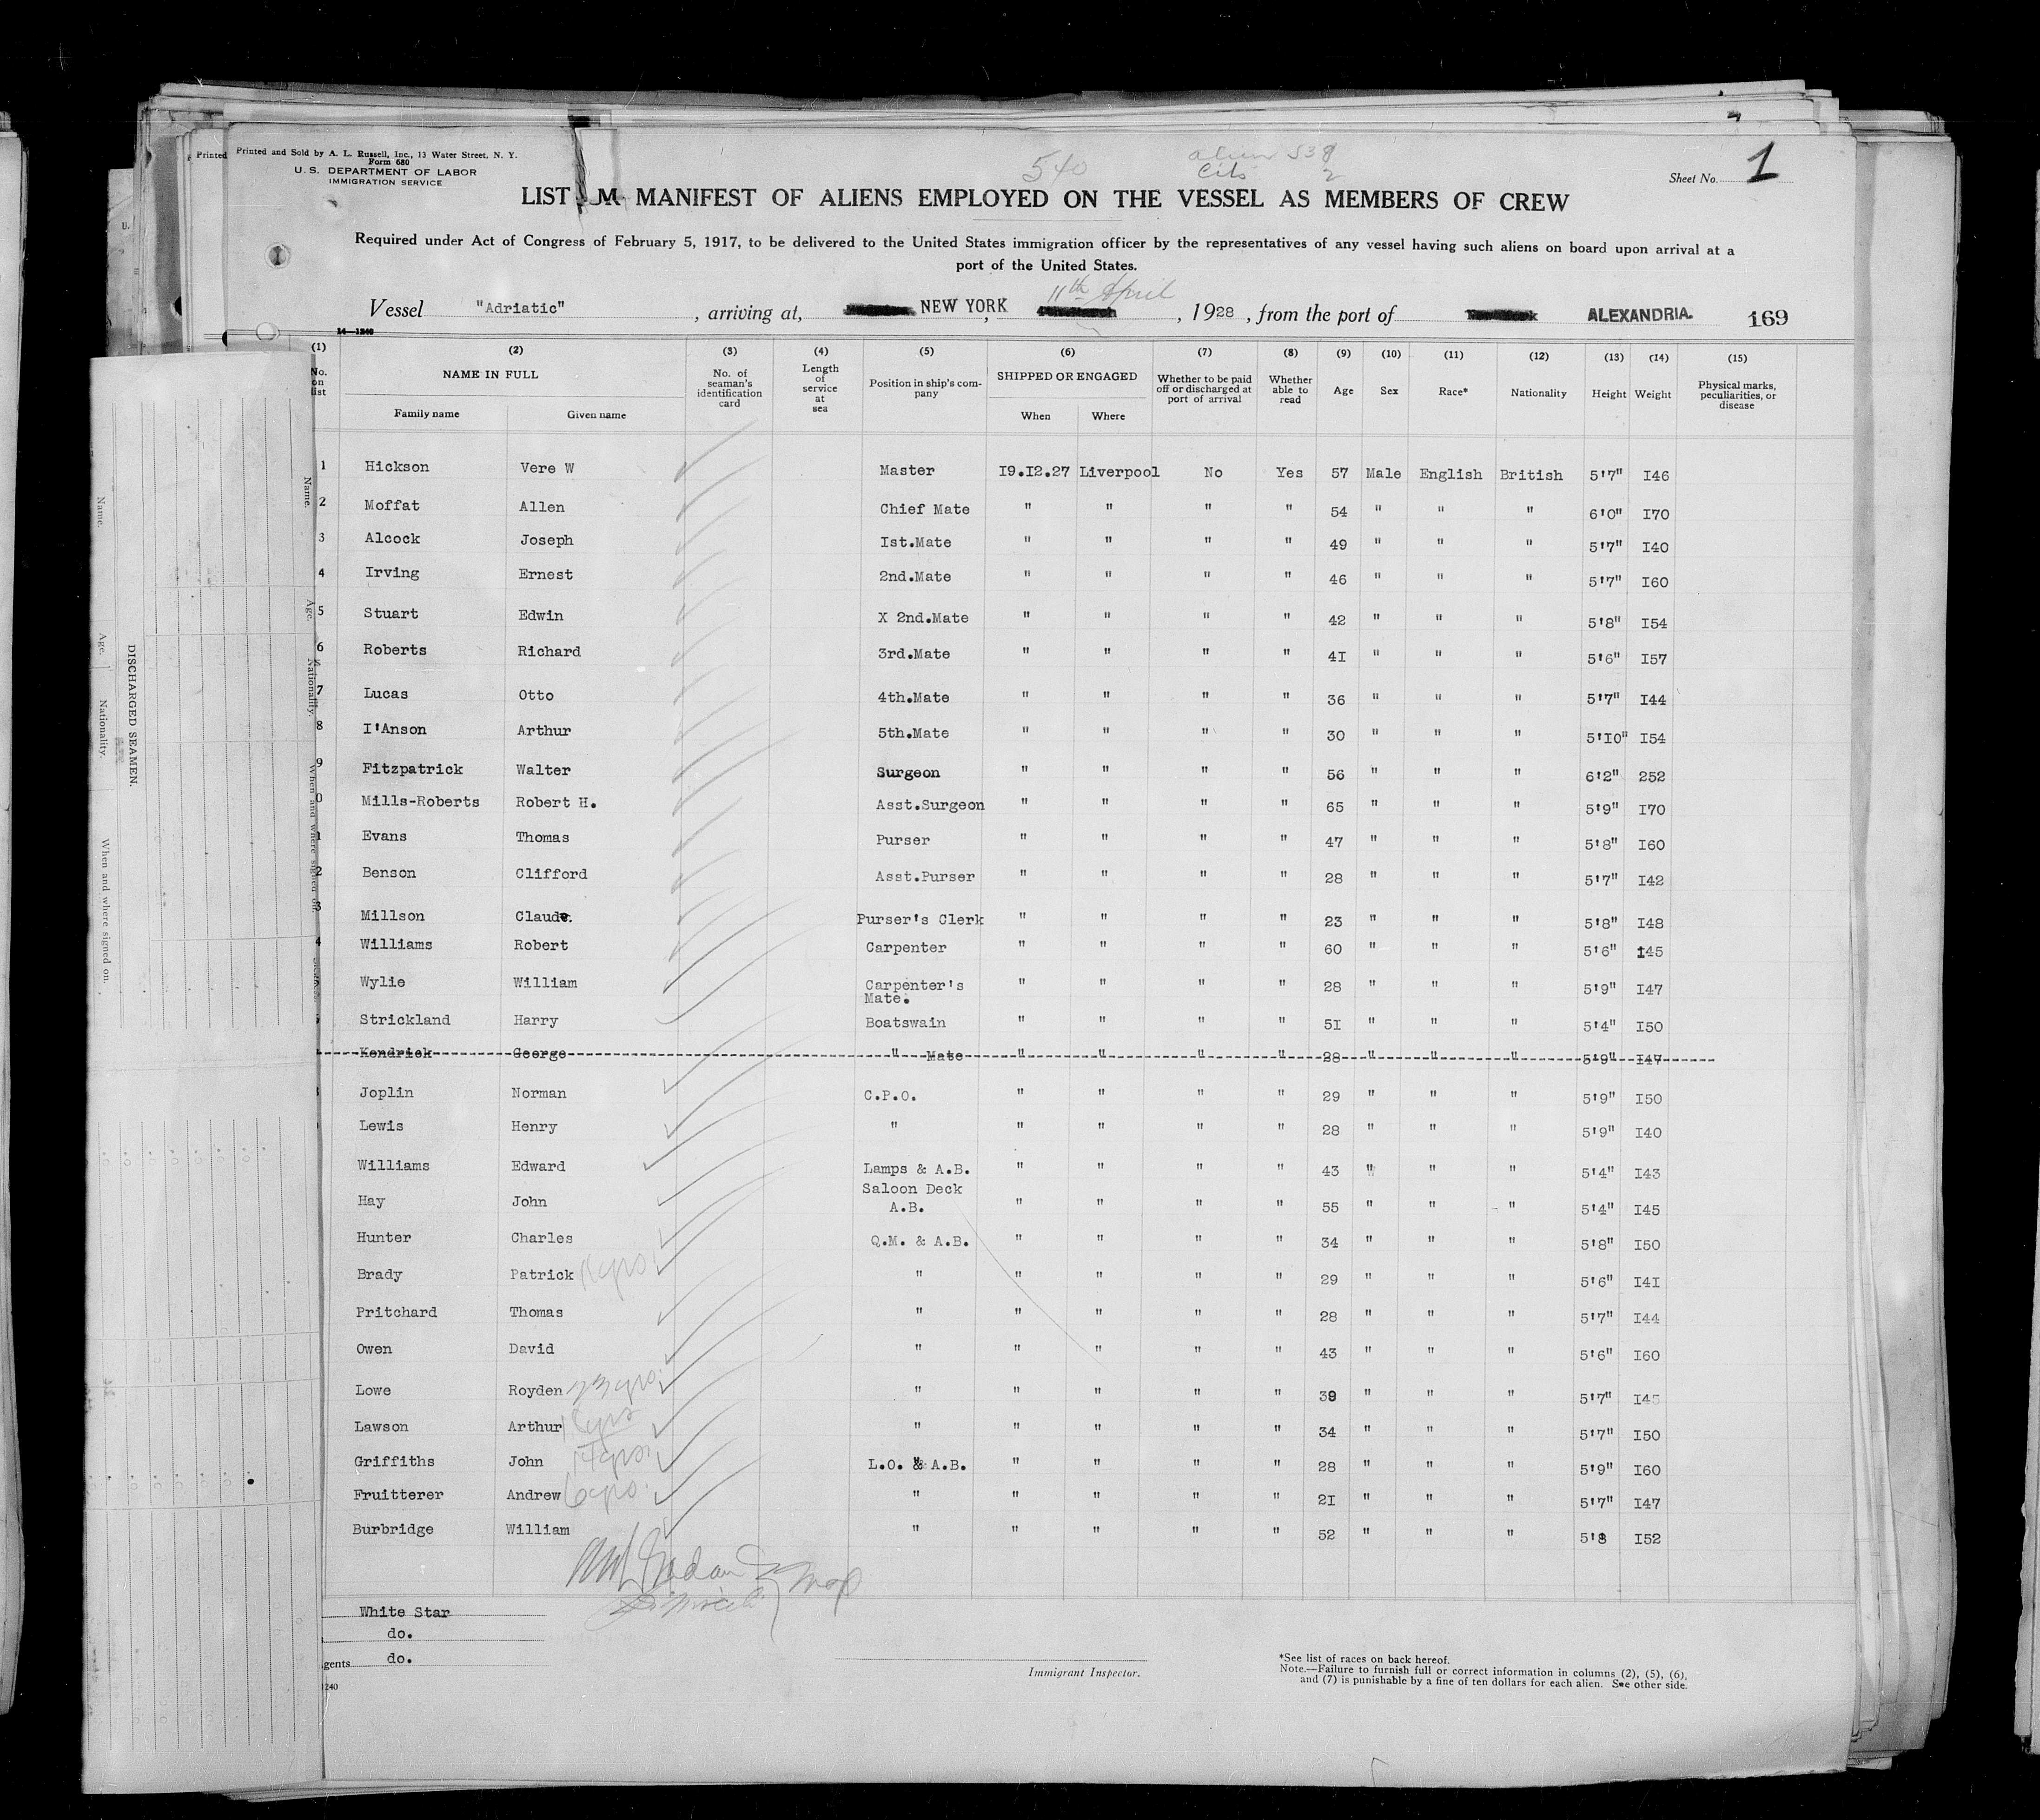 Printed and Sold by A. L. Russell, Inc., 13 Water Street, N. Y.
Form 680
U. S. DEPARTMENT OF LABOR
IMMIGRATION SERVICE
540
Cits 2
Sheet No. 1
LIST MANIFEST OF ALIENS EMPLOYED ON THE VESSEL AS MEMBERS OF CREW
Required under Act of Congress of February 5, 1917, to be delivered to the United States immigration officer by the representatives of any vessel having such aliens on board upon arrival at a
port of the United States.
11th April
Vessel "Adriatic", arriving at, NEW YORK, , 1928, from the port of ALEXANDRIA. 169
14—1240
(1) (2) (3) (4) (5) (6) (7) (8) (9) (10) (11) (12) (13) (14) (15)
No. on list NAME IN FULL No. of seaman's identification card Length of service at sea Position in ship's company SHIPPED OR ENGAGED Whether to be paid off or discharged at port of arrival Whether able to read Age Sex Race* Nationality Height Weight Physical marks, peculiarities, or disease
Family name Given name When Where
1 Hickson Vere W Master 19.12.27 Liverpool No Yes 57 Male English British 5'7" 146
2 Moffat Allen Chief Mate " " " " 54 " " " 6'0" 170
3 Alcock Joseph 1st.Mate " " " " 49 " " " 5'7" 140
4 Irving Ernest 2nd.Mate " " " " 46 " " " 5'7" 160
5 Stuart Edwin X 2nd.Mate " " " " 42 " " " 5'8" 154
6 Roberts Richard 3rd.Mate " " " " 41 " " " 5'6" 157
7 Lucas Otto 4th.Mate " " " " 36 " " " 5'7" 144
8 I'Anson Arthur 5th.Mate " " " " 30 " " " 5'10" 154
9 Fitzpatrick Walter Surgeon " " " " 56 " " " 6'2" 252
0 Mills-Roberts Robert H. Asst.Surgeon " " " " 65 " " " 5'9" 170
1 Evans Thomas Purser " " " " 47 " " " 5'8" 160
2 Benson Clifford Asst.Purser " " " " 28 " " " 5'7" 142
3 Millson Claude. Purser's Clerk " " " " 23 " " " 5'8" 148
4 Williams Robert Carpenter " " " " 60 " " " 5'6" 145
Wylie William Carpenter's Mate. " " " " 28 " " " 5'9" 147
Strickland Harry Boatswain " " " " 51 " " " 5'4" 150
Kendrick George " Mate " " " " 28 " " " 5'9" 147
Joplin Norman C.P.O. " " " " 29 " " " 5'9" 150
Lewis Henry " " " " " 28 " " " 5'9" 140
Williams Edward Lamps & A.B. " " " " 43 " " " 5'4" 143
Hay John Saloon Deck A.B. " " " " 55 " " " 5'4" 145
Hunter Charles Q.M. & A.B. " " " " 34 " " " 5'8" 150
Brady Patrick " " " " " 29 " " " 5'6" 141
Pritchard Thomas " " " " " 28 " " " 5'7" 144
Owen David " " " " " 43 " " " 5'6" 160
Lowe Royden " " " " " 39 " " " 5'7" 145
Lawson Arthur " " " " " 34 " " " 5'7" 150
Griffiths John L.O. & A.B. " " " " 28 " " " 5'9" 160
Fruitterer Andrew 6 yrs. " " " " " 21 " " " 5'7" 147
Burbridge William " " " " " 52 " " " 5'8 152
White Star
do.
gents do.
1240
Immigrant Inspector.
*See list of races on back hereof.
Note.—Failure to furnish full or correct information in columns (2), (5), (6),
and (7) is punishable by a fine of ten dollars for each alien. See other side.
DISCHARGED SEAMEN.
Name. Age. Nationality. When and where signed on.
Name. Age. Nationality. When and where signed on.